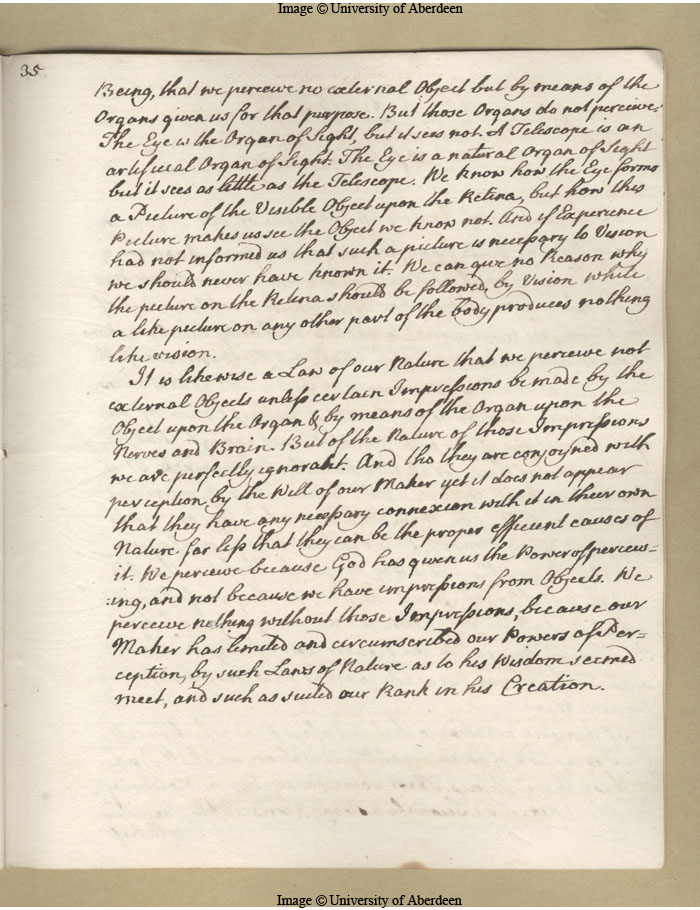 Image © University of Aberdeen
35
Being, that we perceive no external Object but by means of the
Organs given us for that purpose. But those Organs do not perceive.
The Eye is the Organ of Sight, but it sees not. A Telescope is an
artificial Organ of Sight. The Eye is a natural Organ of Sight
but it sees as little as the Telescope. We know how the Eye forms
a Picture of the Visible Object upon the Retina, but how this
Picture makes us see the Object we know not. And if Experience
had not informed us that such a picture is necessary to Vision
we should never have known it. We can give no Reason why
the picture on the Retina should be followed by Vision while
a like picture on any other part of the body produces nothing
like vision.
It is likewise a Law of our Nature that we perceive not
external Objects unless certain Impressions be made by the
Object upon the Organ & by means of the Organ upon the
Nerves and Brain. But of the Nature of those Impressions
we are perfectly ignorant. And tho they are conjoyned with
perception by the Will of our Maker yet it does not appear
that they have any necessary connexion with it in their own
Nature far less that they can be the proper efficient causes of
it. We perceive because God has given us the Power of perceiv=
:ing, and not because we have impressions from Objects. We
perceive nothing without those Impressions, because our
Maker has limited and circumscribed our Powers of Per=
ception, by such Laws of Nature as to his Wisdom seemed
meet, and such as suited our Rank in his Creation.
Image © University of Aberdeen